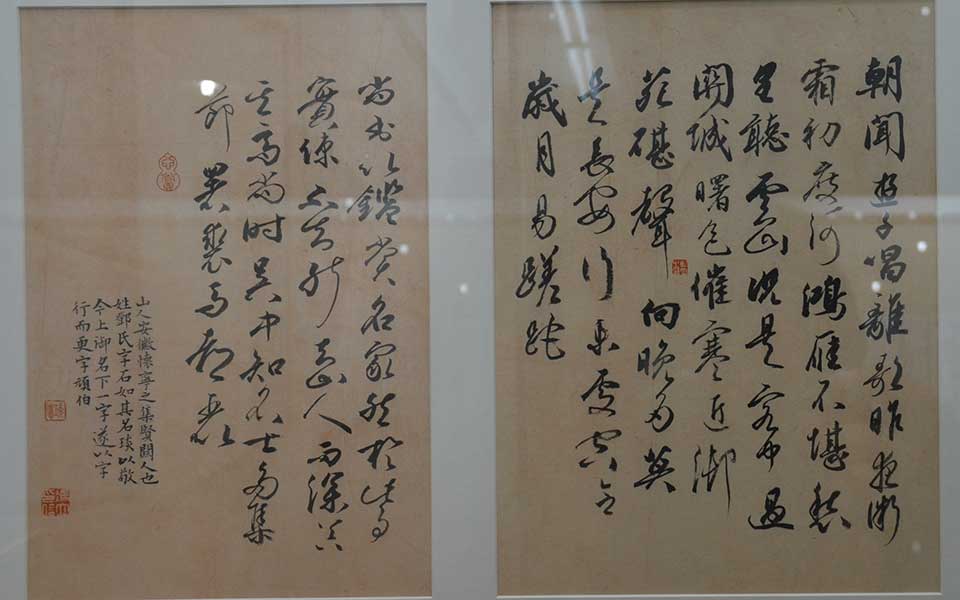 朝聞遊子唱離歌昨夜微
霜初度河鴻雁不堪愁
里聽雲山況是客中過
關城曙色催寒近御
苑碪聲向晚多莫
是長安行樂處空令
歲月易蹉跎
尚書以鑑賞名家
實 山人而深
高尚时吳中知名士多集
節署裘馬都麗
山人安徽懷寧之集賢關人也
姓鄧氏字石如其名琰以敬
今上御名下一字遂以字
行而更字頑伯